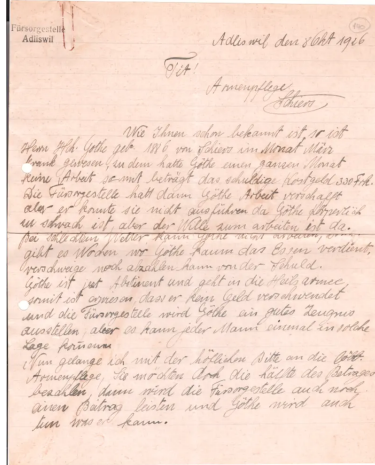 Fürsorgestelle
Adliswil
Adliswil den 8 Okt 1926
Tit!
Armenpflege
Schiers
Wie Ihnen schon bekannt ist, so ist
Herr Joh. Göthe geb 1886 von Schiers im Monat März
krank gewesen, zu dem hatte Göthe einen ganzen Monat
keine Arbeit so mit beträgt das schuldige Kostgeld 330 Frk.
Die Fürsorgestelle hatt dann Göthe Arbeit verschafft
aber er konnte sie nicht ausführen da Göthe körperlich
zu schwach ist, aber der Wille zum arbeiten ist da.
Bei schlechtem Wetter kann Göthe nicht
gibt es Wochen wo Göthe kaum das Essen verdient,
verschwege noch abzahlen kann von der Schuld.
Göthe ist jezt Abstinent und geht in die Heilsarmee
somit ist erwiesen dass er kein Geld verschwendet
und die Fürsorgestelle wird Göthe ein gutes Zeugnis
ausstellen, aber es kann jeder Mann einmal in solche
Lage kommen
Nun gelange ich mit der höflichen Bitte an die Löbl.
Armenpflege, Sie möchten doch die hälfte des Betrages
bezahlen, dann wird die Fürsorgestelle auch noch
einen Beitrag leisten und Göthe wird auch
tun was er kann.